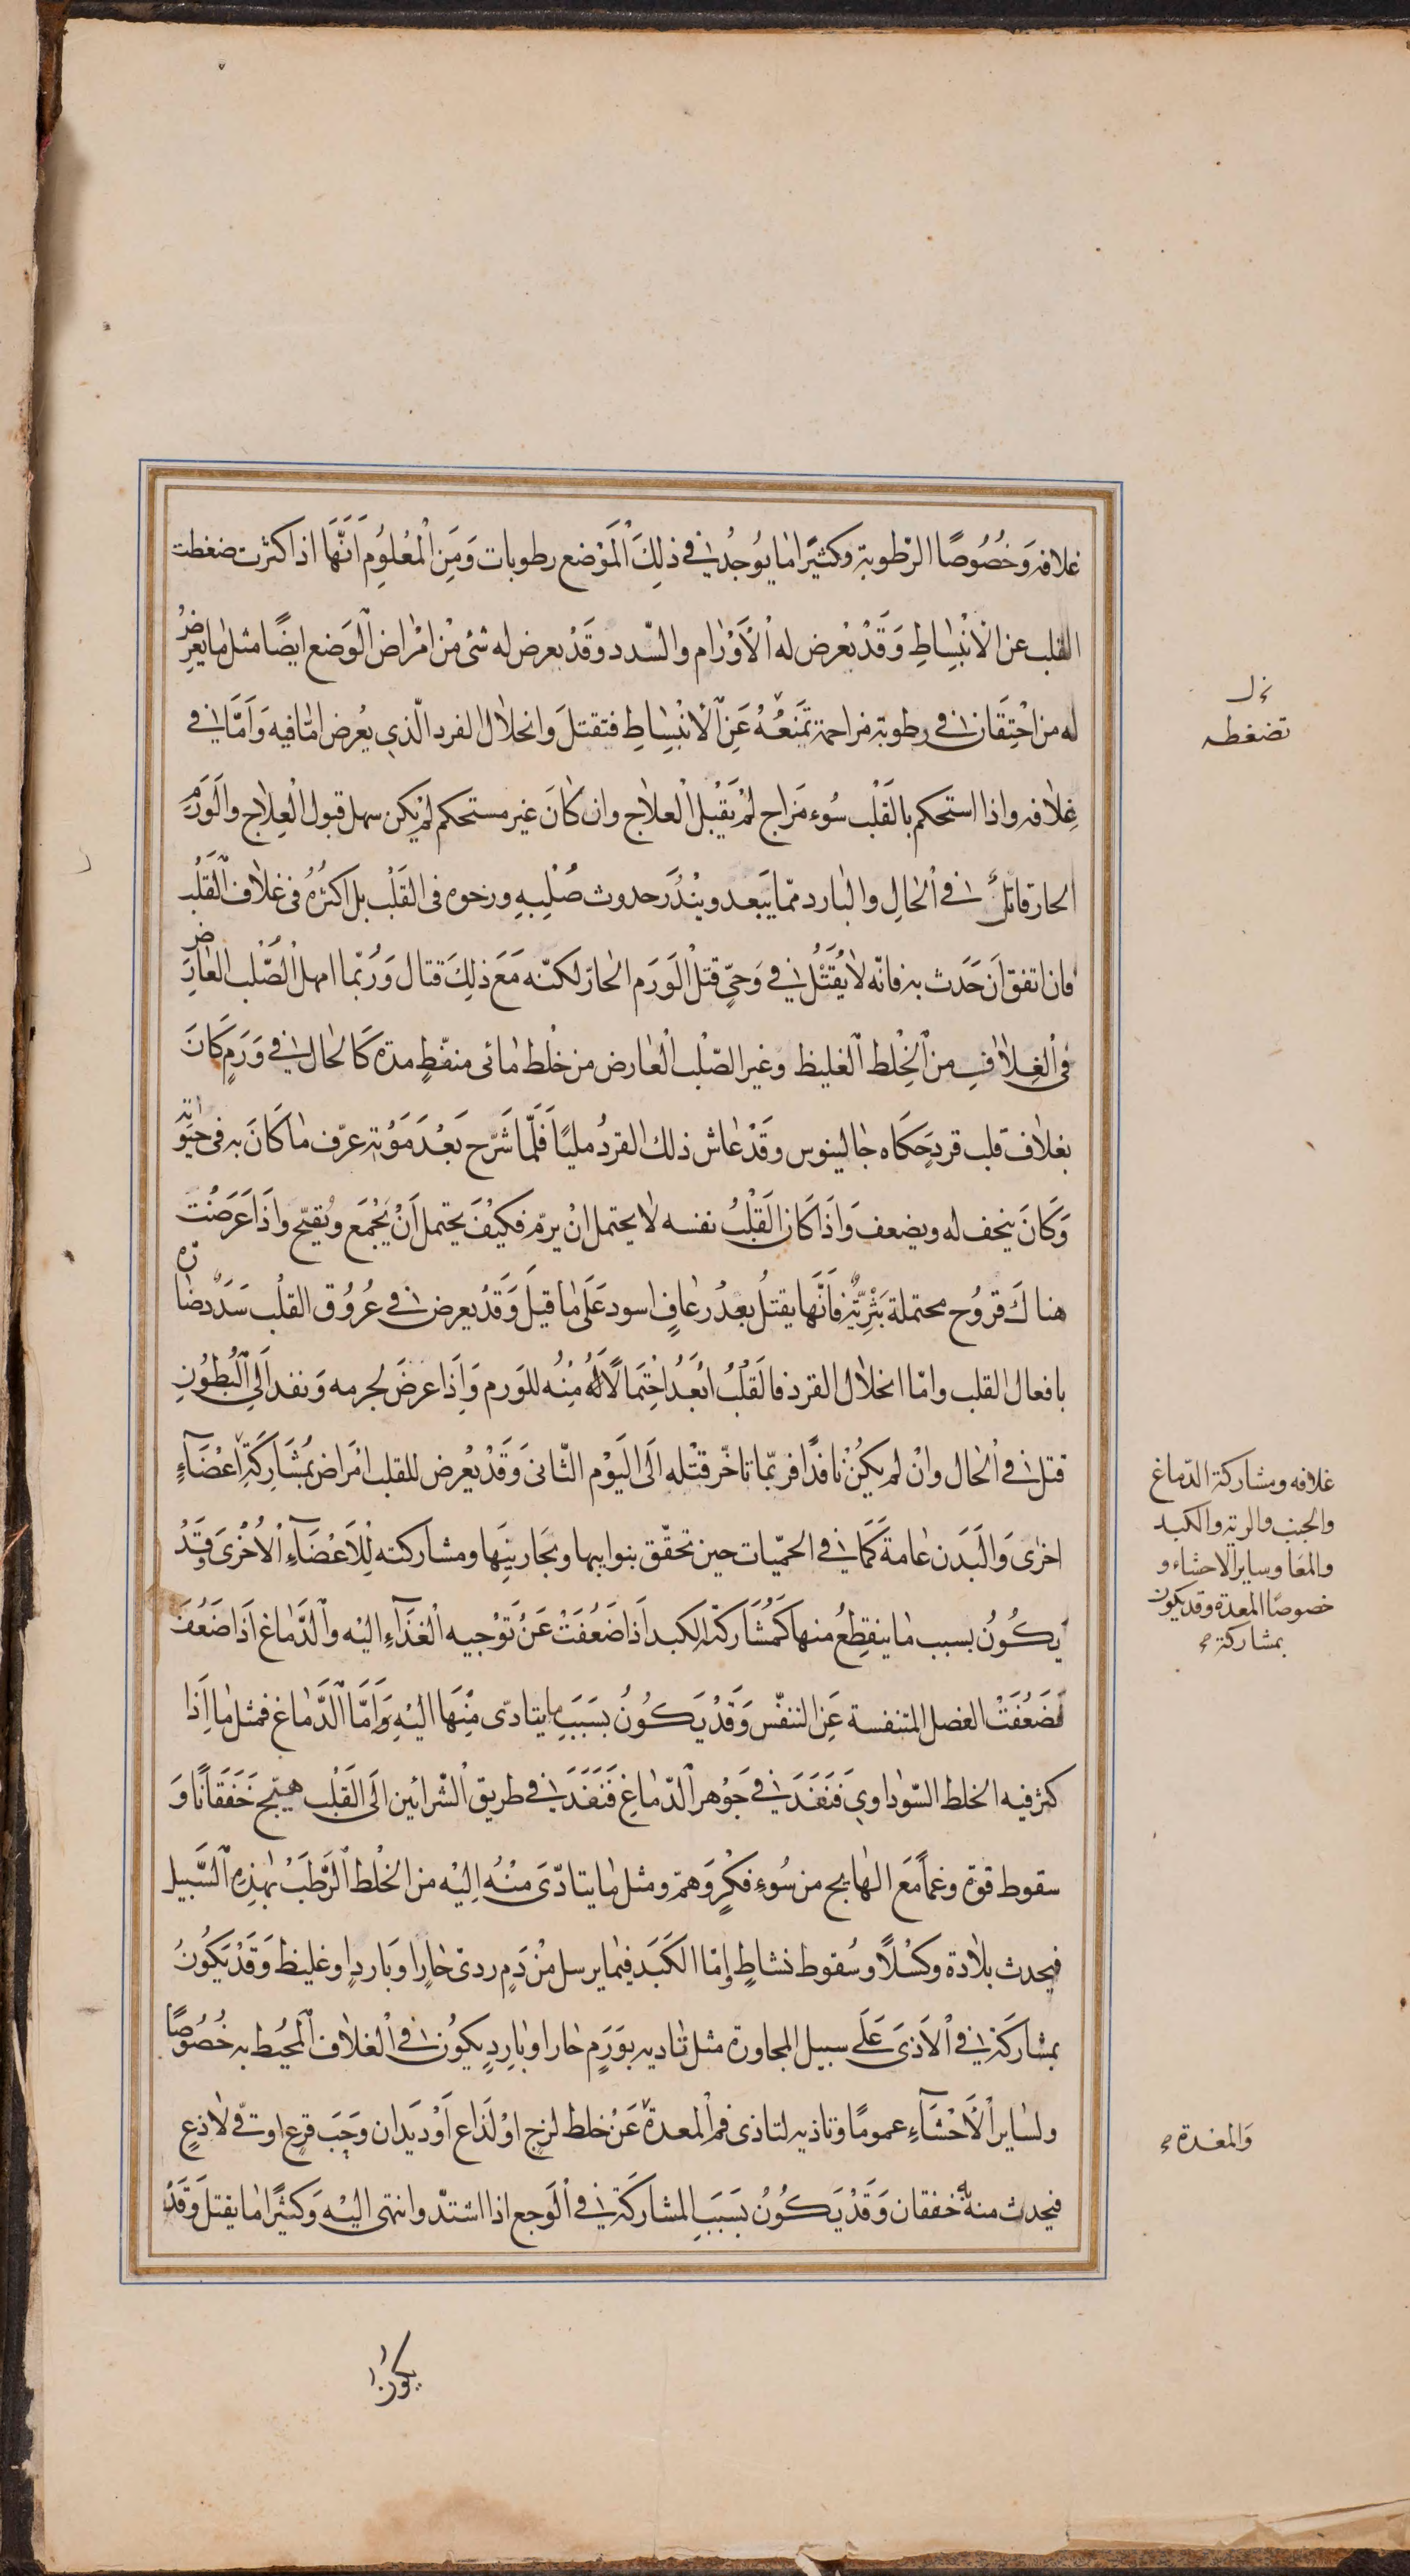 غلافه وَخُصُوصًا الرّطوبة وكثيرًا ما يُوجُد في ذلِكَ الْمَوْضع رطوبات وَمِنَ الْمعْلُومِ اَنَّهَا اذا كثرت ضغطت
القلب عن الْانْبِسِاطِ وَقَدْ يعْرض له الْأَوْرٰام والسّدد وقَدْ يعرض له شئ مِنْ امْرٰاض الْوَضع ايضًا مثل مٰا يعرِضُ
له من احْتِقَان في رطوبة مزاحمة تمَنَعُهُ عَنِ الْأنْبِسِاطِ فتقتلَ وانحلٰال الفرد الّذي يعُرض امّٰا فيه وَاَمَّا في
غِلٰافه واذا استحكم بالقَلْب سُوء مَزاج لَمْ يَقْبل الْعلاج وان كٰانَ غير مستحكم لَمْ يكن سهل قبول الْعِلٰاج والَوَرَم
الحار قاتلٌ في الْحٰالِ والبارد ممّا يَبعد ويَنْدُر حدوث صُلْبِهِ ورخوه فى القَلْب بل اكثرُهُ فى غلٰاف الْقَلْب
فان اتفق اَن حَدَث به فانّه لا يُقَتْل في وَحىِّ قتل الْوَرَم الحارّ لكنّه مَعَ ذلِكَ قتال وَرُبّما امهل الْصُّلب العارِض
فى الْغِلٰافِ مِن الْخِلْط الْغليظ وغير الصّلْب الْعٰارض من خلْط مٰائى منفّطٍ مدّة كَا لحٰال في وَرَمٍ كَانَ
بغلاف قلب قردٍ حَكَاه جٰالينوس وقَدْ عٰاش ذلك القردُ مليًا فَلَمّا شَرّح بَعْدَ مَوْته عرّف مٰا كَانَ به فى حيَوٰاته
وَكَانَ ينحف له ويضعف وَاذَا كَان الْقَلْبُ نفسه لٰا يحتمل انْ يرمّ فكيْفَ يحتمل اَنْ يَجْمَع ويُقيّح واذَا عَرَضَتْ
هناكَ قروُح محتملة بَثْرِيّة فَاَنَّهَا يقتلُ بعدْ رعٰافٍ اسود عَلَى مٰا قيلَ وَقَدْ يعرض في عُرُوُق القلْب سَدَدٌ ضٰارّة
بافعال القلب وامّا انحلٰال الفرد فالْقَلْبُ ابَعَدُ احْتِمَالًا لَهُ مِنْهُ للوَرم وَاِذَا عرضَ لجرمه وَنفد اَلِى الْبُطُوُنِ
قتل في الْحٰال وانْ لم يَكُنْ نٰافذًا فربّما تاخّر قتْله اَلَى الْيَوْم الثّانى وَقَدْ يعْرض للقلب امْرٰاض بمُشَارَكَةِ اَعْضٰآءٍ
اخرٰى وَالْبَدن عٰامة كَمَا في الحمّيات حين تحقّق بنوايبها وبحٰارينَها ومشاركته لِلْاَعْضٰآءِ الْاُخْرٰى وقَدْ
يَكُونُ بسبب مٰا ينقطِعُ منها كَمُشَاركة الكبد اَذَا ضَعُفَتْ عَنْ تَوْجيه الْغَذَآءِ اليْه والْدّمٰاغ اَذَا ضَعُفَ
فضَعُفَتْ العضل المتنفسة عَنِ التنفّس وَقَدْ يَكُوُنُ بسَبَبِ ما يتادّى مِنْهَا اليْهِ وَاَمَّا الْدّمٰاغ فمثل مٰا اِذا
كثر فيه الخلط السّودٰاوي فَنَفَدَ في جَوْهر الْدّمٰاغِ فَنَفَدَ في طريق الْشّرائين اَلَى الْقَلْب هيّج خَفَقَانًا وَ
سقوط قوّة وغمًا مَعَ الهٰايج من سُوءِ فكْرٍ وَهَمّ ومثل مٰا يتادّىَ مِنْهُ اِليْه من الخلْط الْرَطَبْ بهٰذِهِ الْسَّبيل
فيحدث بلٰادة وكسْلًا وسُقوط نشاطٍ وامّا الْكَبَد فيمٰا يرسل مْن دَمٍ ردىّ حٰارٍ او بَارِدٍ او غليظ وَقَدْ يَكُونُ
بمشَارَكَة في الْاَذىَ عَلَى سبيل المجاورة مثل تادٰيه بوَرَمٍ حار او بٰارِدٍ يكُون في الْغلٰاف الْمحُيط به خُصُوصًا
ولسٰاير الْأَحْشَآءِ عمومًا وتاذيه لتاذى فم الْمعدة عَنْ خلط لزجٍ اوْ لَذاع اَوْ ديَدان وَحَبّ قرع او قئ لٰاذعٍ
فيحدث منهُ خفقان وَقَدْ يَكُونُ بسَبَبِ المشاركَةِ في الْوَجع اذا اشتدّ وانتهى اليْهِ وَكثيرًا مٰا يقتلَ وَقَدْ
تضغطه
غلافه ومشاركة الدّماغ
والجنب والرية والكبد
والمعَا وساير الاحشاء و
خصوصًا المعدة وقد يكون
بمشاركة
وَالمعْدة
يكون